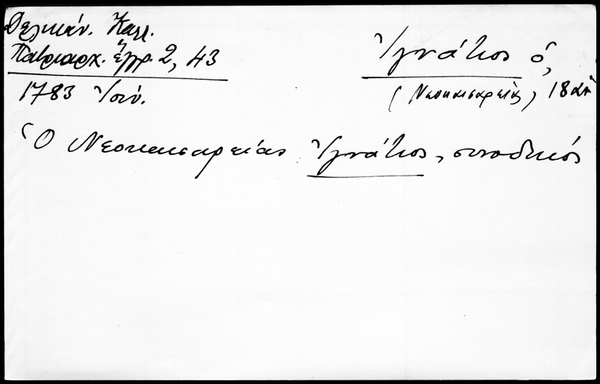 Δελικάν. Καλλ.
Πατριαρχ. Ἔγγρ. 2, 43
1783 Ἰούν.
Ἰγνάτιος ὁ,
(Νεοκαισαρείας) 18 αἰ
Ὁ Νεοκαισαρείας Ἰγνάτιος, συνοδικός